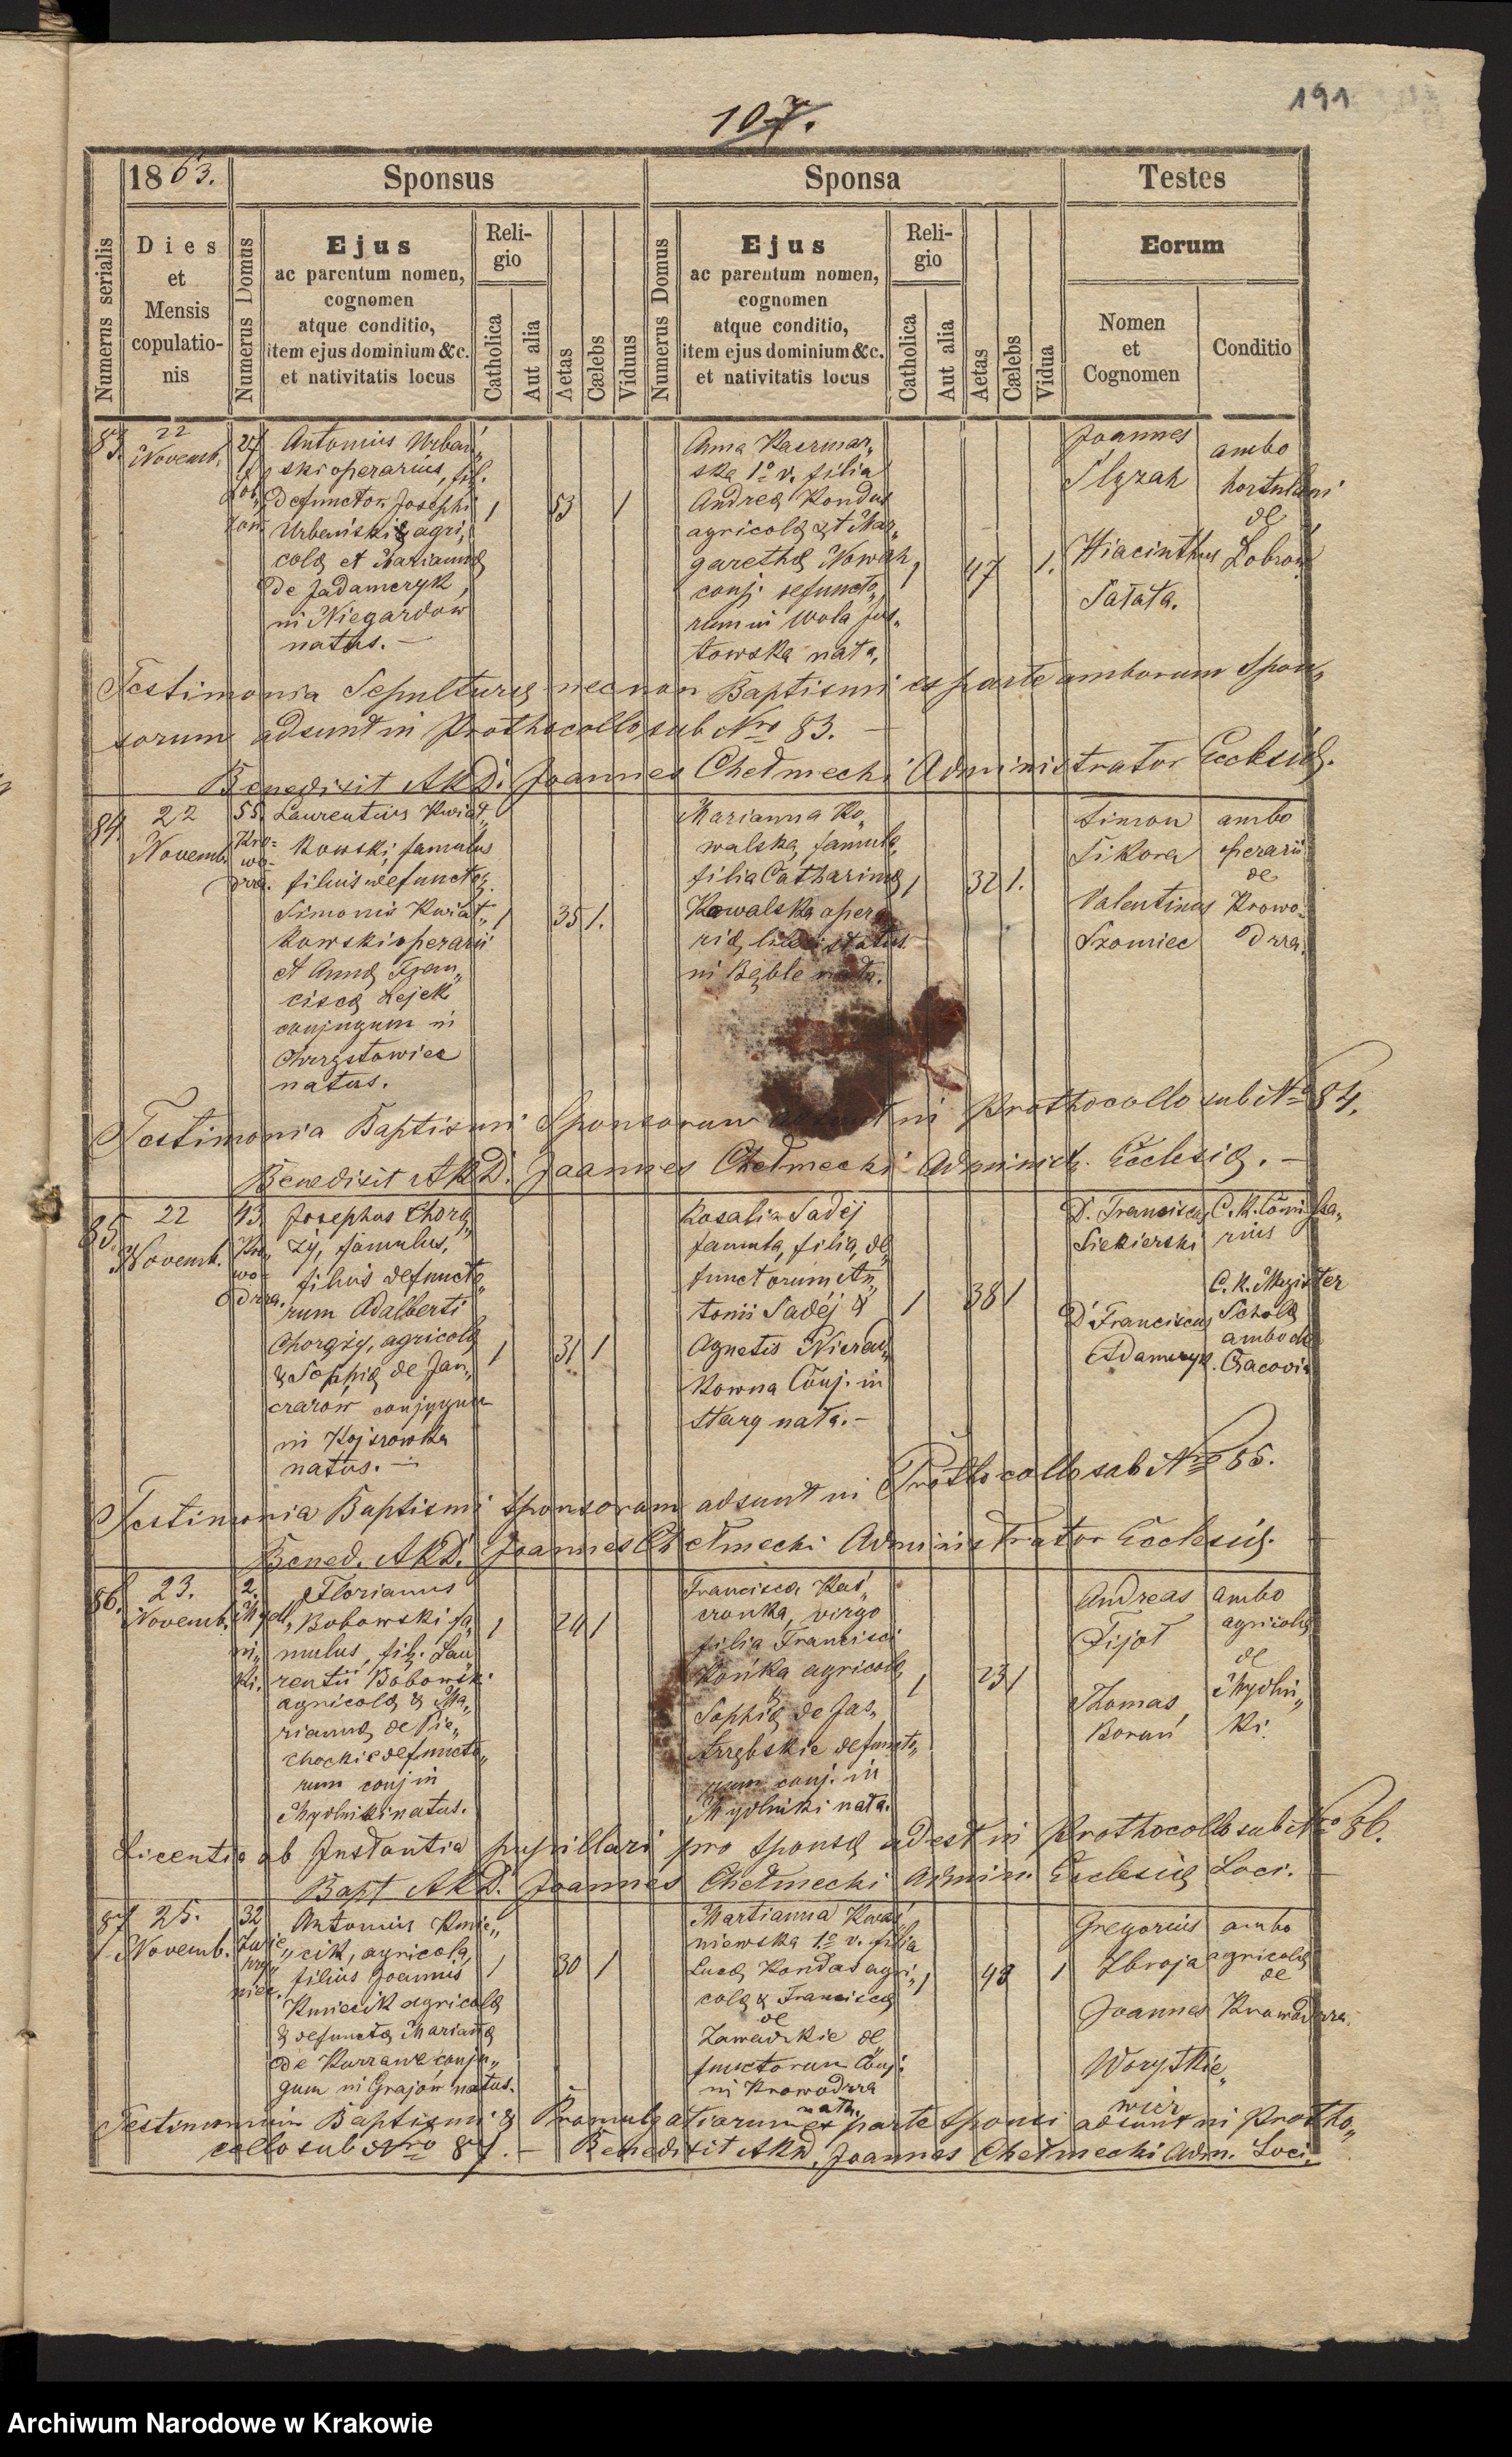 191
107.
1863.
Sponsus
Sponsa
Testes
Numerus serialis
Dies
et
Mensis
copulatio-
nis
Numerus Domus
Ejus
ac parentum nomen,
cognomen
atque conditio,
item ejus dominium &c.
et nativitatis locus
Reli-
gio
Catholica
Aut alia
Aetas
Cælebs
Viduus
Numerus Domus
Ejus
ac parentum nomen,
cognomen
atque conditio,
item ejus dominium &c.
et nativitatis locus
Reli-
gio
Catholica
Aut alia
Aetas
Cælebs
Vidua
Eorum
Nomen
et
Cognomen
Conditio
83.
22
Novemb.
27
Łob„
zow.
Antonius Urbań„
ski operarius, fil.
defunctor. Josephi
Urbański agri„
colæ et Mariannæ
de Jadamczyk,
in Niegardow
natus. —
1
53
1
Anna Kaczmar„
ska 1o v. filia
Andreæ Kondus
agricolæ & Mar„
garethæ Nowak,
conj. defuncto„
rum in Wola Jus„
towska nata,
1
47
1.
Joannes
Slyzak
Hiacinthus
Sałata.
ambo
hortulani
de
Łobzow
Testimonia Sepulturæ necnon Baptismi ex parte amborum Spon„
sorum adsunt in Prothocollo sub Nro 83. —
Benedixit AKD. Joannes Chełmecki Administrator Ecclesiæ.
84.
22
Novemb.
55.
Kro-
wo-
drza.
Laurentius Kwiat„
kowski, famulus
filius defunctor.
Simonis Kwiat„
kowski operarii
et Annæ Fran„
ciscæ Lejek
conjugum in
Chrząstowice
natus.
1
35
1.
Marianna Ko„
walska, famula,
filia Catharinæ
Kowalska opera
riæ, liberi status
in Bęble nata.
1
32
1.
Simon
Sikora
Valentinus
Szomiec
ambo
operarii
de
Krowo-
drza.
Testimonia Baptismi Sponsorum adsunt in Prothocollo sub No 84.
Benedixit AKD. Joannes Chełmecki Administr. Ecclesiæ. —
85.
22
Novemb.
43.
Kro„
wo-
drza.
Josephus Chorą„
ży, famulus,
filius defuncto„
rum Adalberti
Chorąży, agricolæ
& Sophiæ de Jan„
czarów conjugum
in Kojszowka
natus. —
1
31
1
Rosalia Sadéj
famula, filia, de„
functorum An„
tonii Sadéj &
Agnetis Nierad„
kowna Conj. in
Stary nata. —
1
38
1
D. Franciscus
Siekierski
D. Franciscus
Adamczyk.
C. K. Comissa„
rius
C. K. Magister
Scholæ
ambo de
Cracovia
Testimonia Baptismi Sponsorum adsunt in Prothocollo sub Nro 85.
Bened. AKD. Joannes Chełmecki Administrator Ecclesiæ.
86.
23.
Novemb.
2.
Mydl„
ni„
ki.
Florianus
Bobowski fa„
mulus, fil. Lau„
rentii Bobowski
agricolæ & Ma„
riannæ de Pie„
chockie defuncto„
rum conj in
Mydlniki natus.
1
24
1
Francisca Kaś„
czonka, virgo
filia Francisci
Końka agricolæ
&
Sophiæ de Jas„
trzębskie defuncto„
rum conj. in
Mydlniki nata.
1
23
1
Andreas
Fijoł
Thomas
Boroń
ambo
agricolæ
de
Mydlni„
ki.
Licentia ab Instantia pupillari pro Sponsa adest in Prothocollo sub No 86.
Bapt AKD. Joannes Chełmecki Admin. Ecclesiæ Loci. —
87
25.
Novemb.
32
Zwie„
rzy„
niec.
Antonius Kmie„
cik, agricola,
filius Joannis
Kmiecik agricolæ
& defunctæ Mariañæ
de Kurzawe conju„
gum in Grajów natus.
1
30
1
Martianna Kwaś„
niewska 1o v. filia
Lucæ Kondas agri„
colæ & Franciscæ
de
Zawadzkie de„
functorum Conj.
in Krowodrza
nata.
1
48
1
Gregorius
Zbroja
Joannes
Worytkie„
wicz
ambo
agricolæ
de
Krowodrza.
Testimonium Baptismi & Promulgatiorum ex parte Sponsi adsunt in Protho„
collo sub Nro 87. — Benedixit AKD. Joannes Chełmecki Adm. Loci.
Archiwum Narodowe w Krakowie